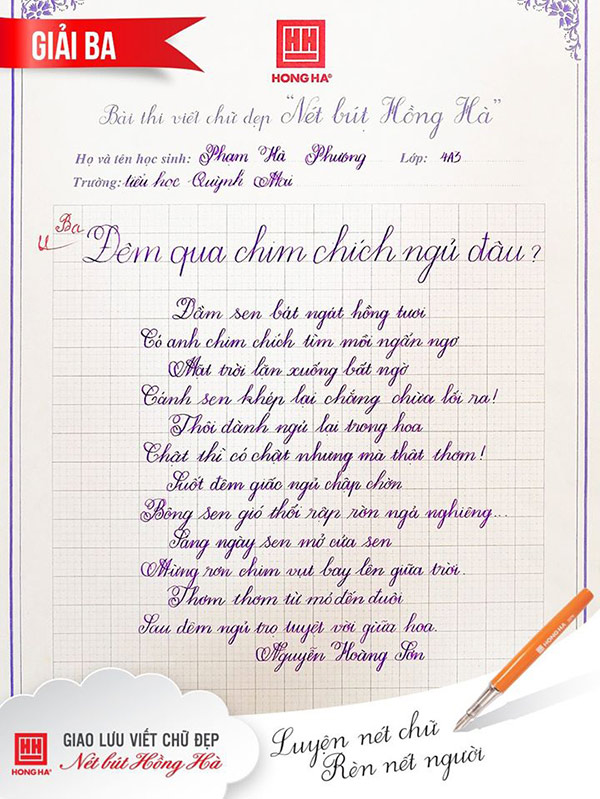 GIẢI BA
HH
HONG HA®
Bài thi viết chữ đẹp "Nét bút Hồng Hà"
Họ và tên học sinh: Phạm Hà Phương Lớp: 4A3
Trường: tiểu học Quỳnh Mai
Ba
Đêm qua chim chích ngủ đâu?
Đầm sen bát ngát hồng tươi
Có anh chim chích tìm mồi ngẩn ngơ
Mặt trời lặn xuống bất ngờ
Cánh sen khép lại chẳng chừa lối ra!
Thôi đành ngủ lại trong hoa
Chật thì có chật nhưng mà thật thơm!
Suốt đêm giấc ngủ chập chờn
Bông sen gió thổi rập rờn ngả nghiêng...
Sang ngày sen mở cửa sen
Mừng rơn chim vụt bay lên giữa trời.
Thơm thơm từ mỏ đến đuôi
Sau đêm ngủ trọ tuyệt vời giữa hoa.
Nguyễn Hoàng Sơn
HONG HA
HH
HONG HA®
GIAO LƯU VIẾT CHỮ ĐẸP
Nét bút Hồng Hà
Luyện nét chữ
Rèn nét người